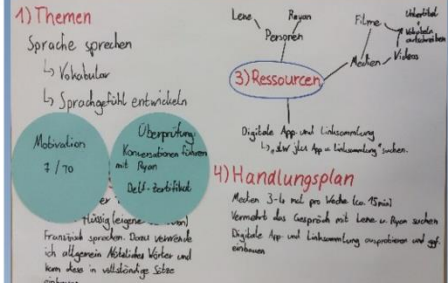 1) Themen
Sprache sprechen
↳ Vokabular
↳ Sprachgefühl entwickeln
Motivation
7/10
Überprüfung:
Konversationen führen
mit Ryan
Delf-Zertifikat
flüssig (eigene
Französisch sprechen. Dazu verwende
ich allgemein nützliche Wörter und
kann diese in vollständige Sätze
einbauen
Lene
Ryan
Personen
Filme
Untertitel
Vokabeln
aufschreiben
Medien
Videos
3) Ressourcen
Digitale App- und Linksammlung
↳ App= Linksammlung" suchen.
4) Handlungsplan
Medien 3-4 mal pro Woche (ca. 15min)
Vermehrt das Gespräch mit Lene u. Ryan suchen
Digitale App- und Linksammlung ausprobieren und ggf.
einbauen